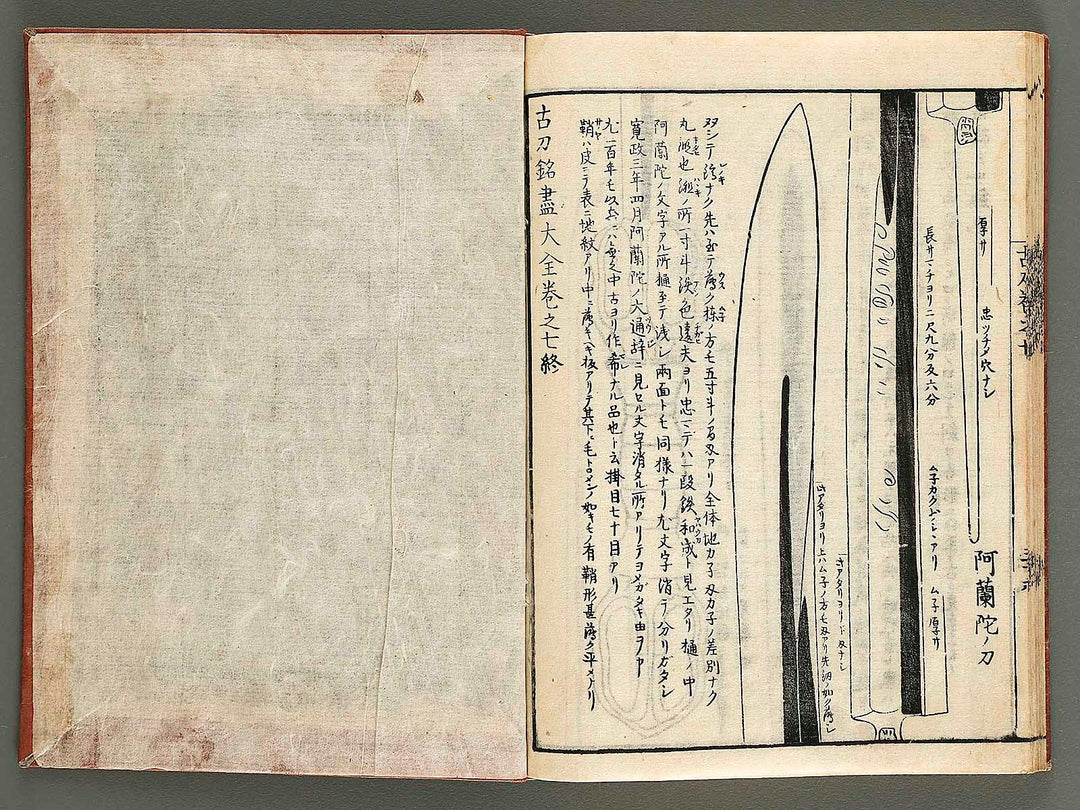 厚サ
忠ツチメ穴ナシ
阿蘭陀ノ刀
長サ一チヨリ二尺九分及六分
ム子厚サ
此アタリヨリ上ハム子ノ方モ刄アリ先細ノ如ク薄シ
此アタリヨリ下刄ナシ
刄シテ ナク先ハ至テ薄ク棟ノ方モ五寸斗ノ間刄アリ全体地カ子刄カ子ノ差別ナク
丸 也 ノ所一寸斗鉄色遠夫ヨリ忠マデハ一段鉄和 ト見エタリ樋ノ中
阿蘭陀ノ文字アル所樋至テ浅シ兩面トモ同様ナリ尤文字消テ分リガタシ
寛政三年四月阿蘭陀ノ大通辞ニ見セル文字消タル所アリテヨメガタキ由ヲヤ
九一百年モ以 ハ 之中古ヨリ作希ナル品也ト云掛目七十目アリ
鞘ハ皮ニテ表ニ地紋アリ中ニ薄キヘギ板アリテ其下モトロメンノ如キモノ有鞘形甚薄ク平メナリ
古刀銘盡大全巻之七終